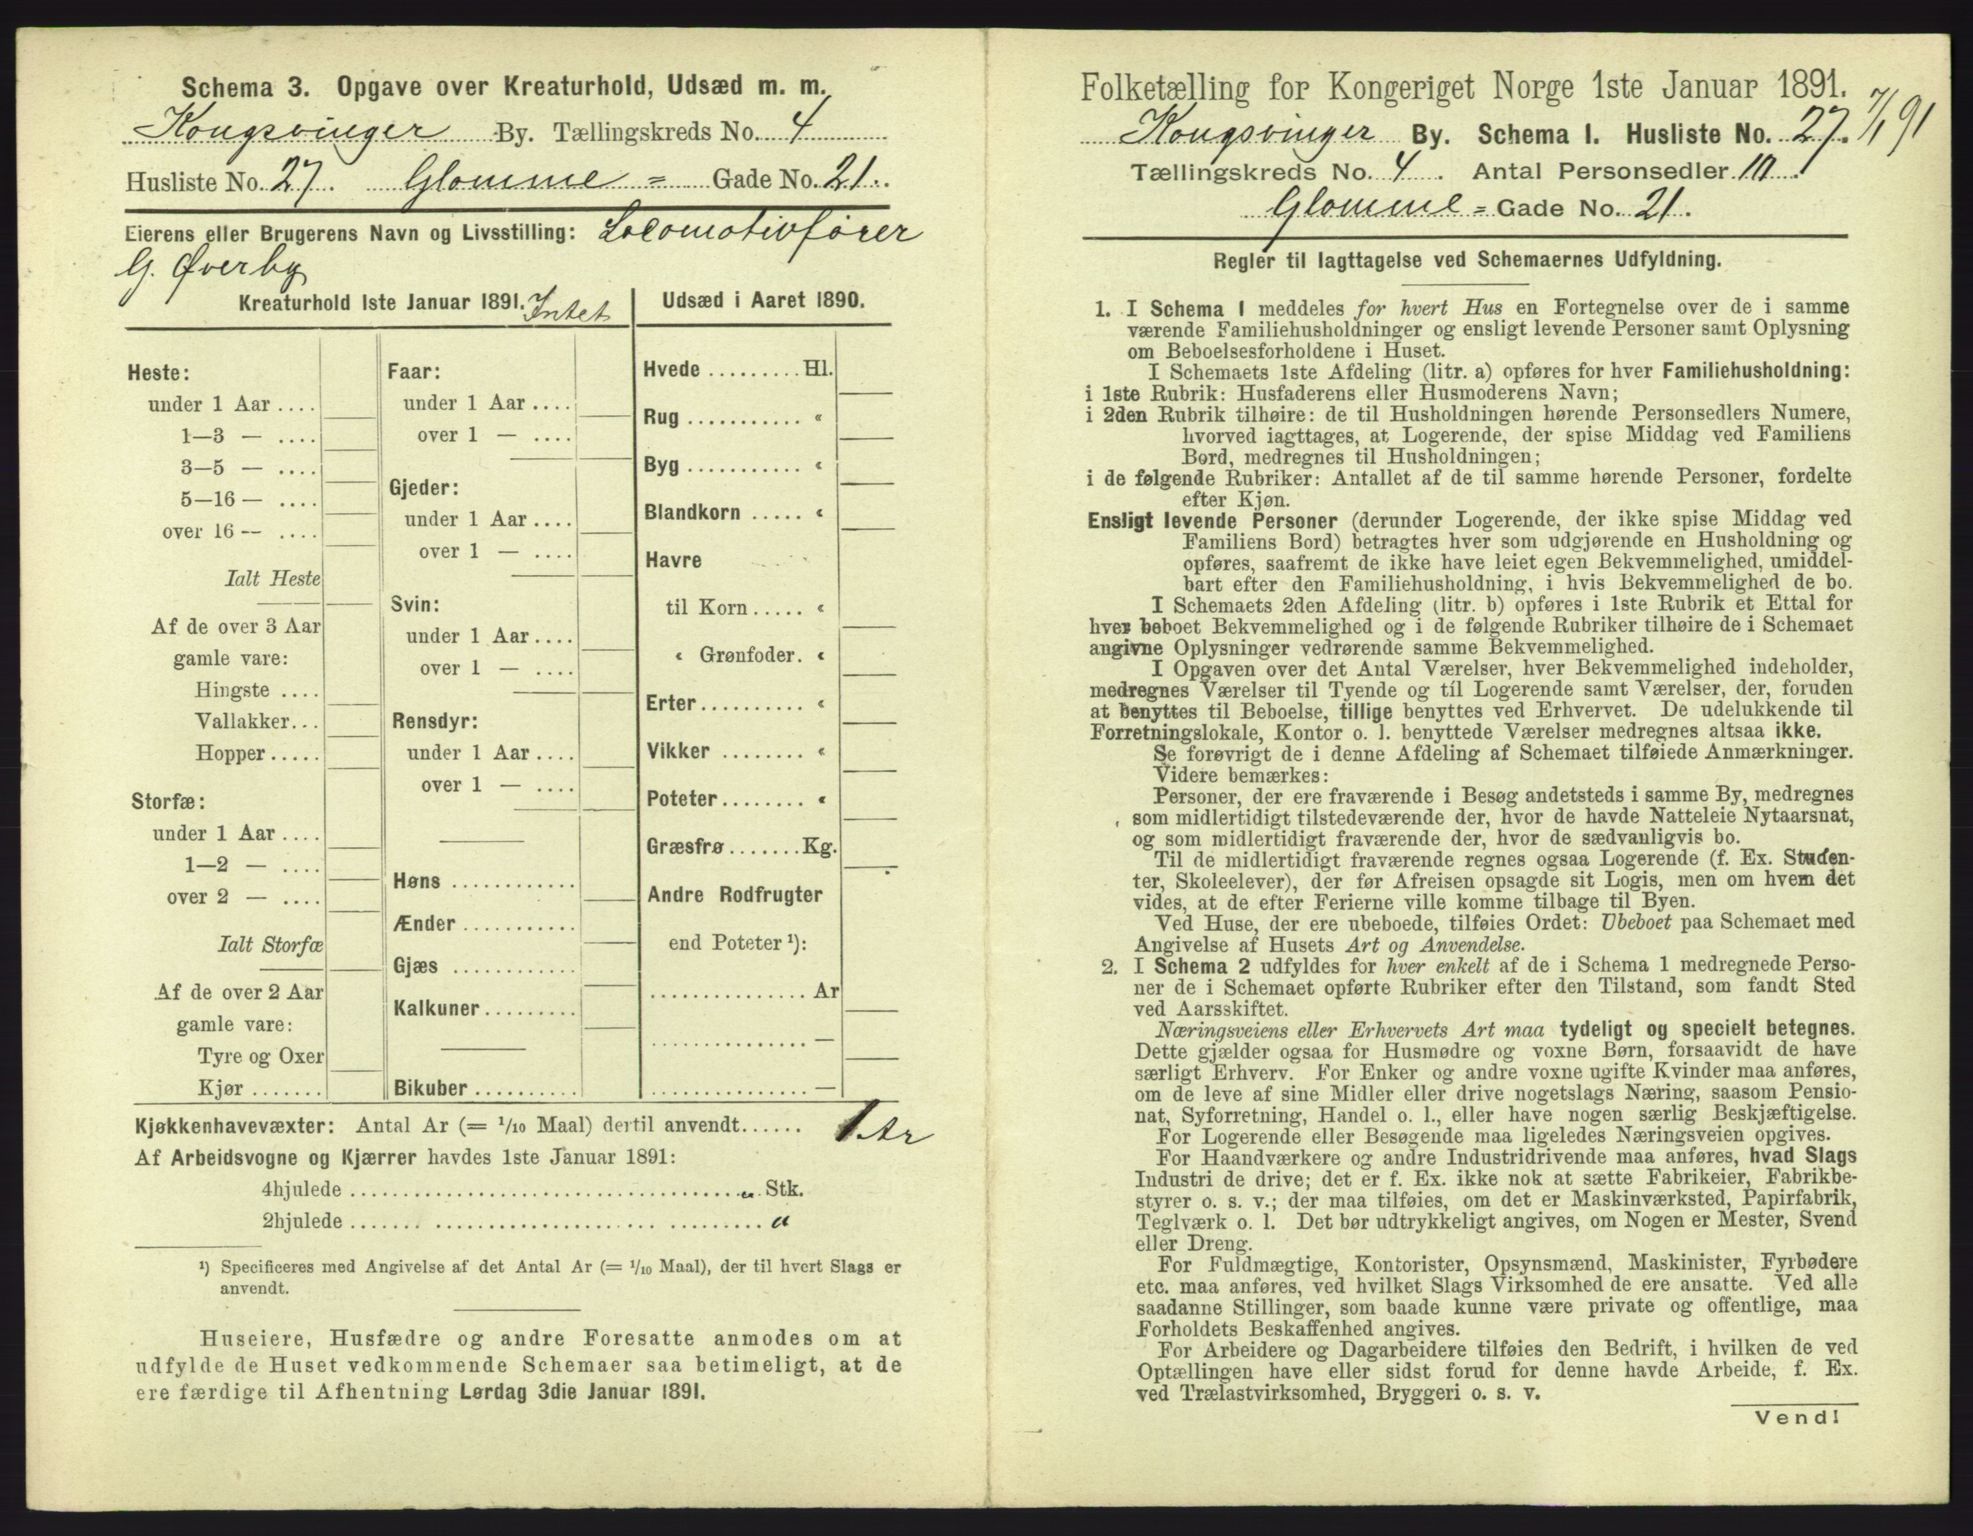 Schema 3. Opgave over Kreaturhold, Udsæd m. m.
Kongsvinger By. Tællingskreds No. 4
Husliste No. 27. Glomme = Gade No. 21.
Eierens eller Brugerens Navn og Livsstilling: Locomotivfører
G. Øverby
Kreaturhold 1ste Januar 1891. Intet
Heste:
under 1 Aar ....
1—3 — ....
3—5 — ....
5—16 — ....
over 16 — ....
Ialt Heste
Af de over 3 Aar
gamle vare:
Hingste ....
Vallakker...
Hopper.....
Storfæ:
under 1 Aar ....
1—2 — ....
over 2 — ....
Ialt Storfæ
Af de over 2 Aar
gamle vare:
Tyre og Oxer
Kjør .......
Faar:
under 1 Aar ....
over 1 — ....
Gjeder:
under 1 Aar ....
over 1 — ....
Svin:
under 1 Aar ....
over 1 — ....
Rensdyr:
under 1 Aar ....
over 1 — ....
Høns ............
Ænder ...........
Gjæs ............
Kalkuner .........
Bikuber ..........
Udsæd i Aaret 1890.
Hvede ......... Hl.
Rug ........... «
Byg ........... «
Blandkorn ..... «
Havre
til Korn ..... «
« Grønfoder. «
Erter.......... «
Vikker ........ «
Poteter........ «
Græsfrø ....... Kg.
Andre Rodfrugter
end Poteter ¹):
............... Ar
............... —
............... —
Kjøkkenhavevæxter: Antal Ar (= 1/10 Maal) dertil anvendt...... 1 Ar
Af Arbeidsvogne og Kjærrer havdes 1ste Januar 1891:
4hjulede ..................................... „ Stk.
2hjulede ..................................... „
¹) Specificeres med Angivelse af det Antal Ar (= 1/10 Maal), der til hvert Slags er
anvendt.
Huseiere, Husfædre og andre Foresatte anmodes om at
udfylde de Huset vedkommende Schemaer saa betimeligt, at de
ere færdige til Afhentning Lørdag 3die Januar 1891.
Folketælling for Kongeriget Norge 1ste Januar 1891.
7/1 91
Kongsvinger By. Schema 1. Husliste No. 27.
Tællingskreds No. 4. Antal Personsedler 10.
Glomme = Gade No. 21.
Regler til Iagttagelse ved Schemaernes Udfyldning.
1. I Schema 1 meddeles for hvert Hus en Fortegnelse over de i samme
værende Familiehusholdninger og ensligt levende Personer samt Oplysning
om Beboelsesforholdene i Huset.
I Schemaets 1ste Afdeling (litr. a) opføres for hver Familiehusholdning:
i 1ste Rubrik: Husfaderens eller Husmoderens Navn;
i 2den Rubrik tilhøire: de til Husholdningen hørende Personsedlers Numere,
hvorved iagttages, at Logerende, der spise Middag ved Familiens
Bord, medregnes til Husholdningen;
i de følgende Rubriker: Antallet af de til samme hørende Personer, fordelte
efter Kjøn.
Ensligt levende Personer (derunder Logerende, der ikke spise Middag ved
Familiens Bord) betragtes hver som udgjørende en Husholdning og
opføres, saafremt de ikke have leiet egen Bekvemmelighed, umiddel-
bart efter den Familiehusholdning, i hvis Bekvemmelighed de bo.
I Schemaets 2den Afdeling (litr. b) opføres i 1ste Rubrik et Ettal for
hver beboet Bekvemmelighed og i de følgende Rubriker tilhøire de i Schemaet
angivne Oplysninger vedrørende samme Bekvemmelighed.
I Opgaven over det Antal Værelser, hver Bekvemmelighed indeholder,
medregnes Værelser til Tyende og til Logerende samt Værelser, der, foruden
at benyttes til Beboelse, tillige benyttes ved Erhvervet. De udelukkende til
Forretningslokale, Kontor o. l. benyttede Værelser medregnes altsaa ikke.
Se forøvrigt de i denne Afdeling af Schemaet tilføiede Anmærkninger.
Videre bemærkes:
Personer, der ere fraværende i Besøg andetsteds i samme By, medregnes
som midlertidigt tilstedeværende der, hvor de havde Natteleie Nytaarsnat,
og som midlertidigt fraværende der, hvor de sædvanligvis bo.
Til de midlertidigt fraværende regnes ogsaa Logerende (f. Ex. Studen-
ter, Skoleelever), der før Afreisen opsagde sit Logis, men om hvem det
vides, at de efter Ferierne ville komme tilbage til Byen.
Ved Huse, der ere ubeboede, tilføies Ordet: Ubeboet paa Schemaet med
Angivelse af Husets Art og Anvendelse.
2. I Schema 2 udfyldes for hver enkelt af de i Schema 1 medregnede Perso-
ner de i Schemaet opførte Rubriker efter den Tilstand, som fandt Sted
ved Aarsskiftet.
Næringsveiens eller Erhvervets Art maa tydeligt og specielt betegnes.
Dette gjælder ogsaa for Husmødre og voxne Børn, forsaavidt de have
særligt Erhverv. For Enker og andre voxne ugifte Kvinder maa anføres,
om de leve af sine Midler eller drive nogetslags Næring, saasom Pensio-
nat, Syforretning, Handel o. l., eller have nogen særlig Beskjæftigelse.
For Logerende eller Besøgende maa ligeledes Næringsveien opgives.
For Haandværkere og andre Industridrivende maa anføres, hvad Slags
Industri de drive; det er f. Ex. ikke nok at sætte Fabrikeier, Fabrikbe-
styrer o. s. v.; der maa tilføies, om det er Maskinværksted, Papirfabrik,
Teglværk o. l. Det bør udtrykkeligt angives, om Nogen er Mester, Svend
eller Dreng.
For Fuldmægtige, Kontorister, Opsynsmænd, Maskinister, Fyrbødere
etc. maa anføres, ved hvilket Slags Virksomhed de ere ansatte. Ved alle
saadanne Stillinger, som baade kunne være private og offentlige, maa
Forholdets Beskaffenhed angives.
For Arbeidere og Dagarbeidere tilføies den Bedrift, i hvilken de ved
Optællingen have eller sidst forud for denne havde Arbeide, f. Ex.
ved Trælastvirksomhed, Bryggeri o. s. v.
Vend!